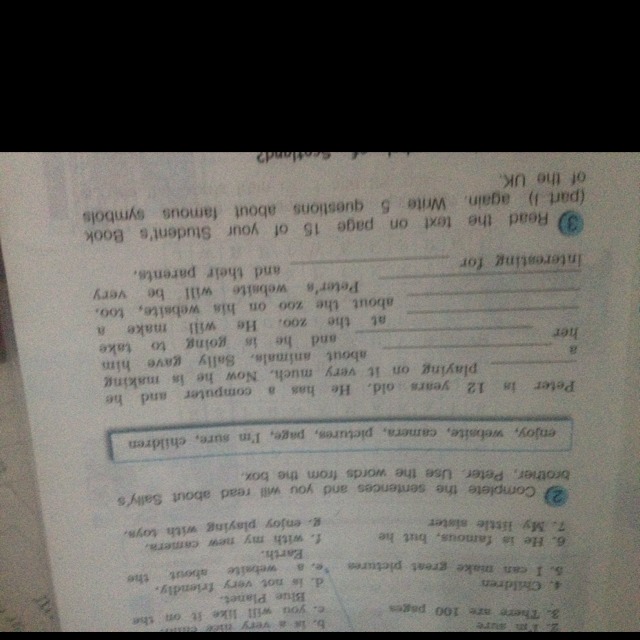 2. I'm sure b. is a very nice
3. There are 100 pages c. you will like it on the
Blue Planet.
4. Children d. is not very friendly.
5. I can make great pictures e. a website about the
Earth.
6. He is famous, but he f. with my new camera.
7. My little sister g. enjoy playing with toys.
2 Complete the sentences and you will read about Sally's
brother, Peter. Use the words from the box.
enjoy, website, camera, pictures, page, I'm sure, children
Peter is 12 years old. He has a computer and he
__________ playing on it very much. Now he is making
a __________ about animals. Sally gave him
her __________ and he is going to take
__________ at the zoo. He will make a
__________ about the zoo on his website, too.
__________ Peter's website will be very
interesting for __________ and their parents.
3 Read the text on page 15 of your Student's Book
(part I) again. Write 5 questions about famous symbols
of the UK.
of Scotland?